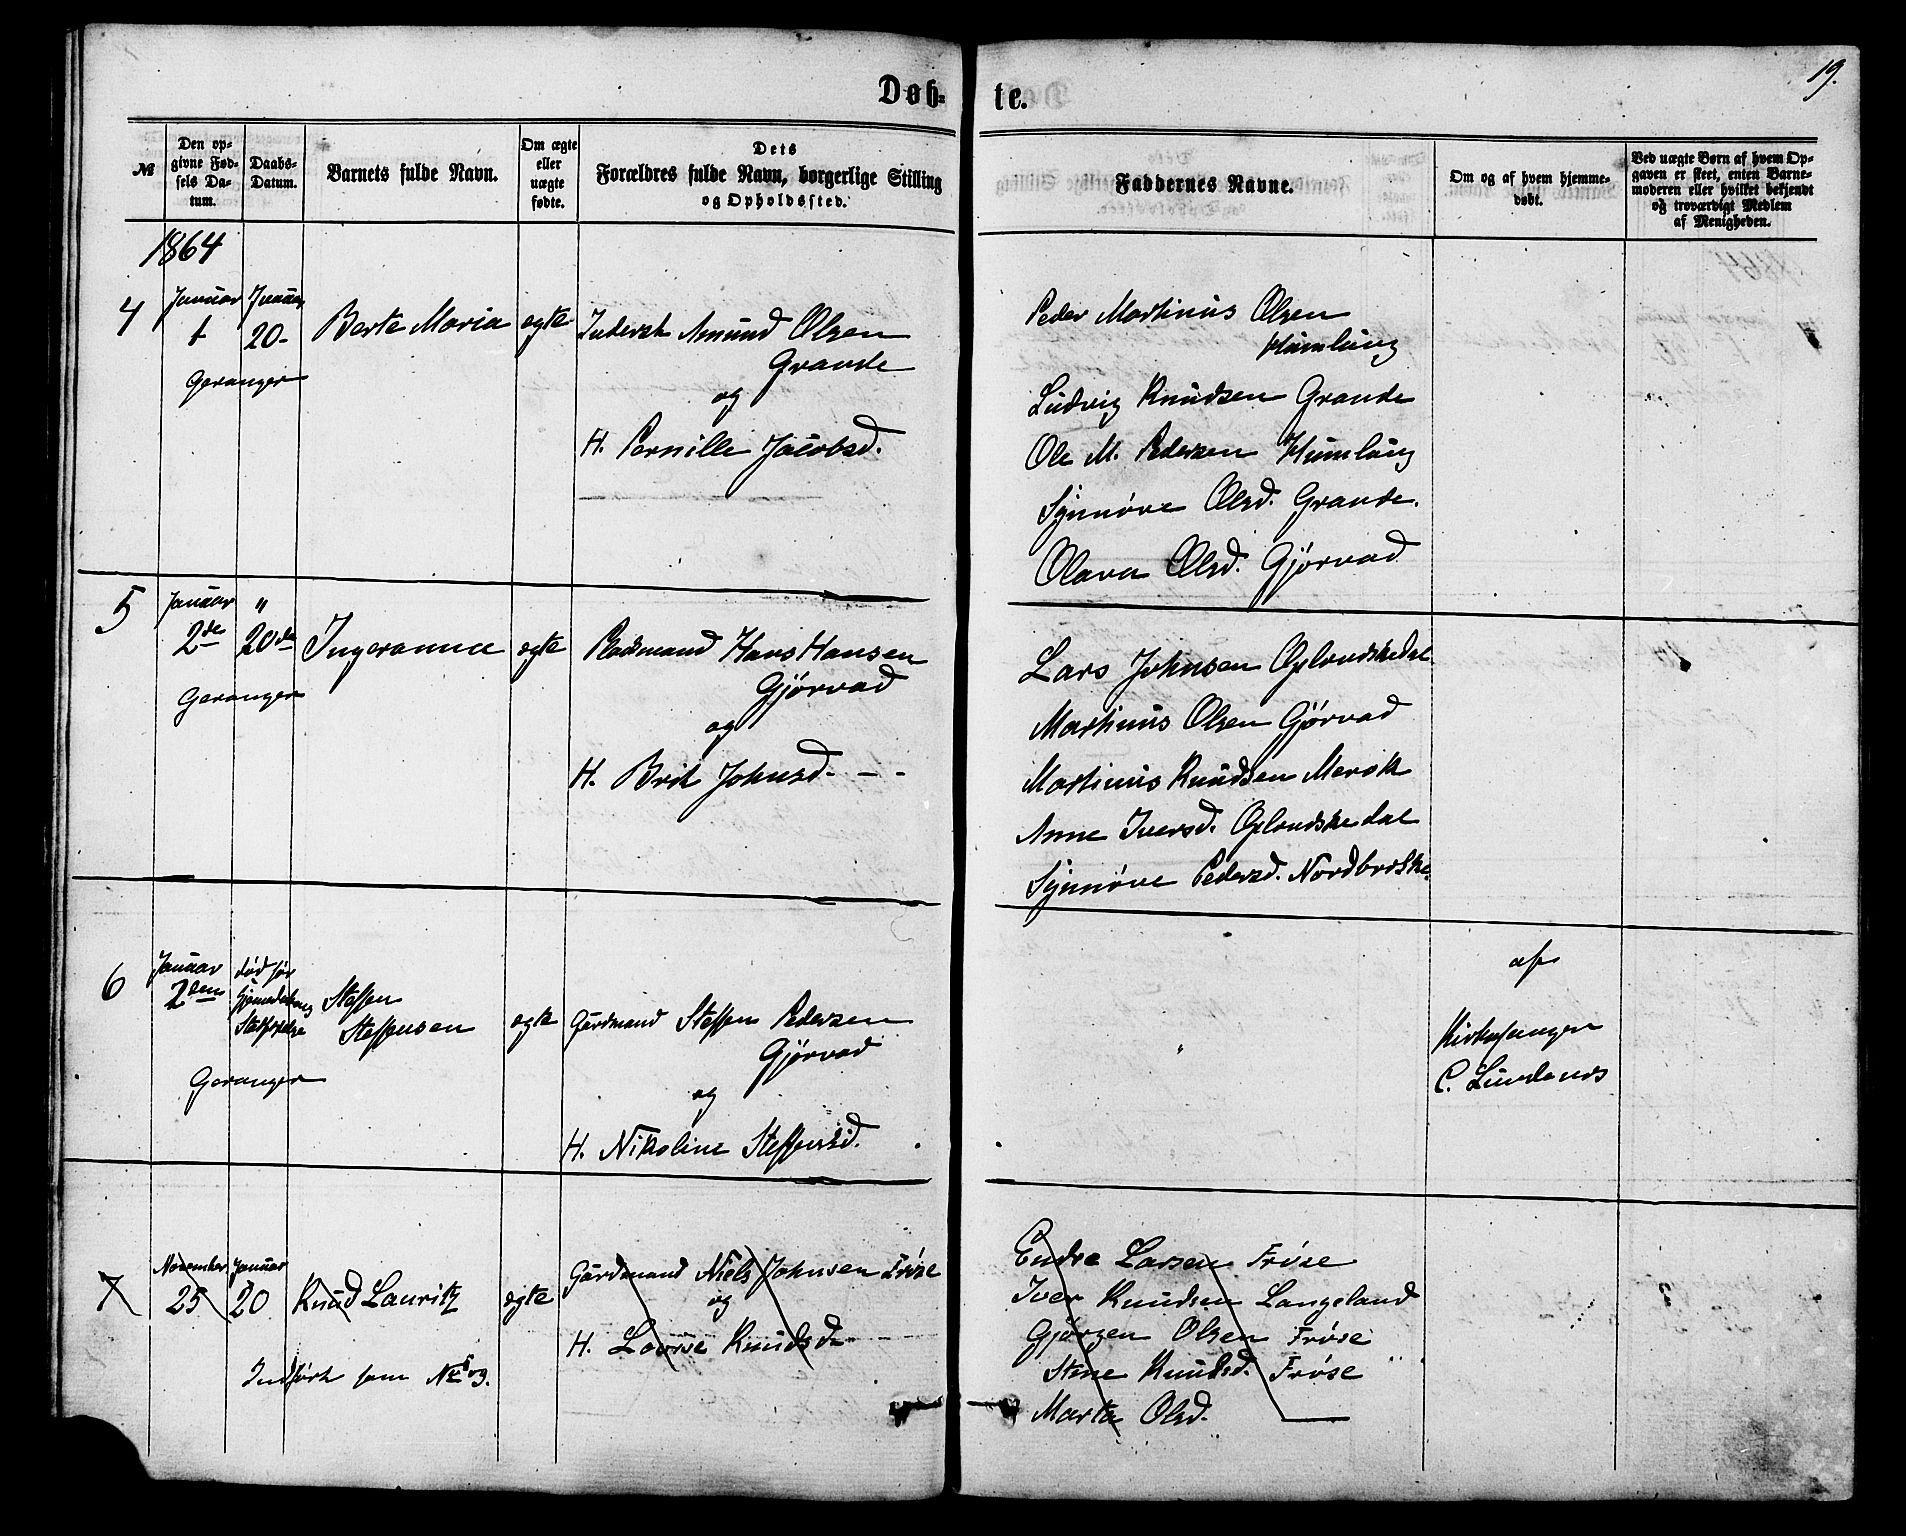 19.
Døb- te.
№
Den op-
givne Fød-
sels Da-
tum.
Daabs-
Datum.
Barnets fulde Navn.
Om ægte
eller
uægte
fødte.
Dets
Forældres fulde Navn, borgerlige Stilling
og Opholdssted.
Faddernes Navne.
Om og af hvem hjemme-
døbt.
Ved uægte Børn af hvem Op-
gaven er skeet, enten Barne-
moderen eller hvilket bekjendt
og troværdigt Medlem
af Menigheden.
1864
4
Januar
1
Januar
20-
Geranger
Berte Maria
egte
Inderst Amund Olsen
Grande
og
H. Pernille Jacobsd.
Peder Martinus Olsen
Humlung
Ludvig Knudsen Grande
Ole M. Pedersen Humlung
Synnøve Olsd. Grande.
Olava Olsd. Gjørvad
5
Januar
2de
"
20de
Geranger
Ingeranna
egte
Pladsmand Hans Hansen
Gjørvad
og
H. Brit Johnsd. - -
Lars Johnsen Oplandskedal
Martinus Olsen Gjørvad
Martinus Knudsen Merok
Anne Iversd. Oplandskedal
Synnøve Pedersd. Nordbrække.
6
Januar
2den
død før
Geranger
Steffen
Steffensen
egte
Gårdmand Steffen Pedersen
Gjørvad
og
H. Nikoline Steffensd.
af
Kirkesanger
C. Lunde
7
November
25
Januar
20
Knud Lauritz
egte
Gårdmand Niels Johnsen Frøse
og
H. Lovise Knudsd
Indført som No
Endre Larsen Frøse
Iver Knudsen Langeland
Gjørgen Olsen Frøse
Stine Knudsd. Frøse
Marta Olsd.